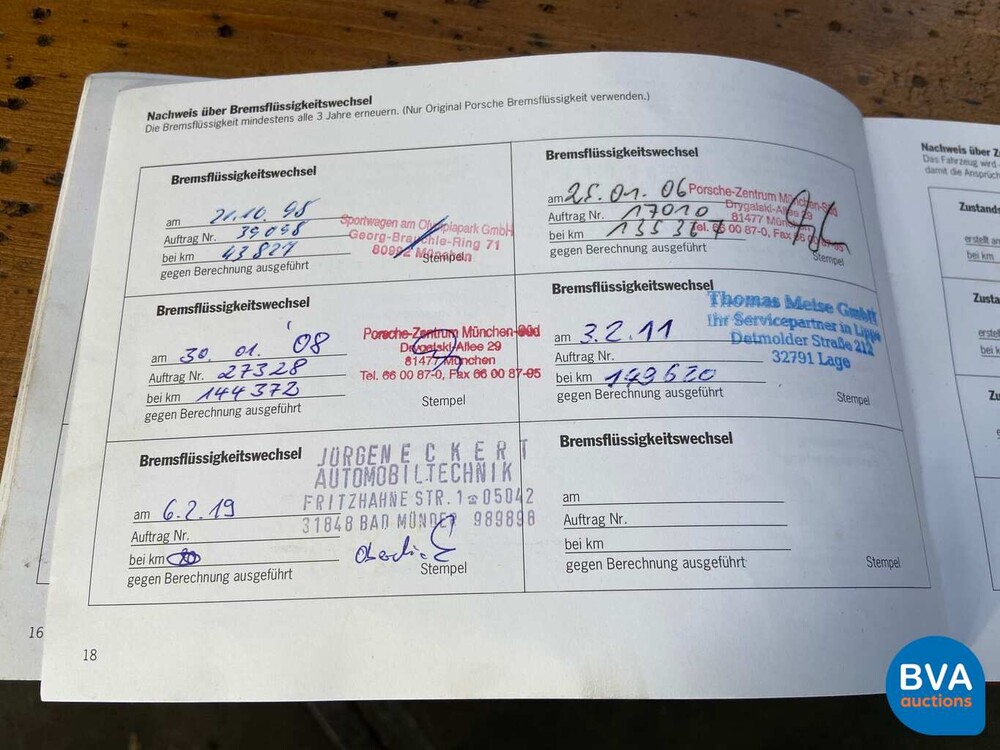 Nachweis über Bremsflüssigkeitswechsel
Die Bremsflüssigkeit mindestens alle 3 Jahre erneuern. (Nur Original Porsche Bremsflüssigkeit verwenden.)
Bremsflüssigkeitswechsel
am 21.10.98
Auftrag Nr. 39098
bei km 43827
gegen Berechnung ausgeführt
Sportwagen am Olympiapark GmbH
Georg-Brauchle-Ring 71
80992 München
Stempel
Bremsflüssigkeitswechsel
am 25.01.06
Auftrag Nr. 17010
bei km 135367
gegen Berechnung ausgeführt
Porsche-Zentrum München-Süd
Drygalski-Allee 29
81477 München
Tel. 66 00 87-0, Fax 66 00 87-95
Stempel
Bremsflüssigkeitswechsel
am 30. 01. '08
Auftrag Nr. 27328
bei km 144372
gegen Berechnung ausgeführt
Porsche-Zentrum München-Süd
Drygalski-Allee 29
81477 München
Tel. 66 00 87-0, Fax 66 00 87-95
Stempel
Bremsflüssigkeitswechsel
am 3.2.11
Auftrag Nr.
bei km 149620
gegen Berechnung ausgeführt
Thomas Meise GmbH
Ihr Servicepartner in Lippe
Detmolder Straße 212
32791 Lage
Stempel
Bremsflüssigkeitswechsel
am 6.2.19
Auftrag Nr.
bei km
gegen Berechnung ausgeführt
JÜRGEN ECKERT
AUTOMOBILTECHNIK
FRITZHAHNE STR. 1 ☎ 05042
31848 BAD MÜNDER 989898
Stempel
Bremsflüssigkeitswechsel
am
Auftrag Nr.
bei km
gegen Berechnung ausgeführt
Stempel
16
18
Nachweis über
Das Fahrzeug wird
damit die Ansprüch
Zustands
erstellt am
bei km
Zusta
erstellt
bei km
Zu
BVA
auctions